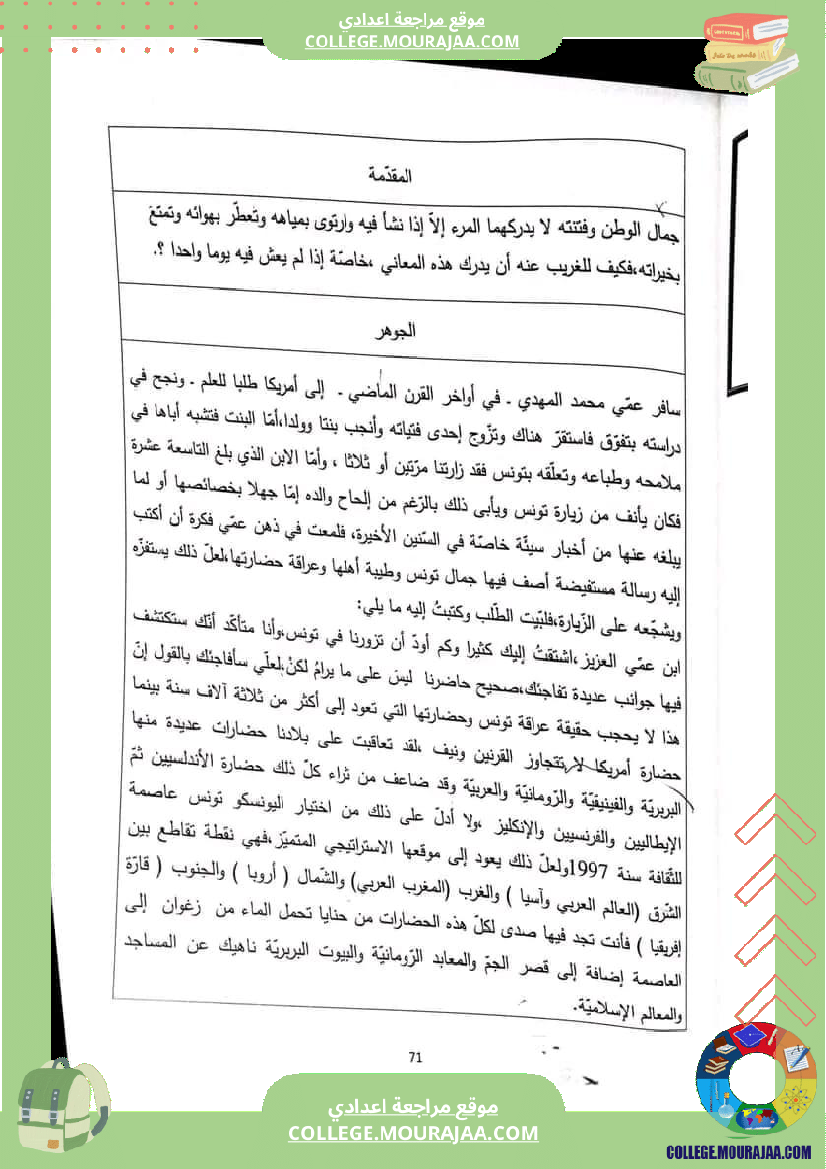 موقع مراجعة اعدادي
COLLEGE.MOURAJAA.COM
المقدّمة
جمال الوطن وفتنته لا يدركهما المرء إلاّ إذا نشأ فيه وارتوى بمياهه وتعطّر بهوائه وتمتع
بخيراته،فكيف للغريب عنه أن يدرك هذه المعاني ،خاصّة إذا لم يعش فيه يوما واحدا ؟.
الجوهر
سافر عمّي محمد المهدي ـ في أواخر القرن الماضي ـ إلى أمريكا طلبا للعلم ـ ونجح في
دراسته بتفوّق فاستقرّ هناك وتزّوج إحدى فتياته وأنجب بنتا وولدا،أمّا البنت فتشبه أباها في
ملامحه وطباعه وتعلّقه بتونس فقد زارتنا مرّتين أو ثلاثا ، وأمّا الابن الذي بلغ التاسعة عشرة
فكان يأنف من زيارة تونس ويأبى ذلك بالرّغم من إلحاح والده إمّا جهلا بخصائصها أو لما
يبلغه عنها من أخبار سيئّة خاصّة في السّنين الأخيرة، فلمعت في ذهن عمّي فكرة أن أكتب
إليه رسالة مستفيضة أصف فيها جمال تونس وطيبة أهلها وعراقة حضارتها،لعلّ ذلك يستفزّه
ويشجّعه على الزّيارة،فلبّيت الطّلب وكتبتُ إليه ما يلي:
ابن عمّي العزيز،اشتقتُ إليك كثيرا وكم أودّ أن تزورنا في تونس،وأنا متأكّد أنّك ستكتشف
فيها جوانب عديدة تفاجئك،صحيح حاضرنا ليسَ على ما يرامُ لكنْ،لعلّي سأفاجئك بالقول إنّ
هذا لا يحجب حقيقة عراقة تونس وحضارتها التي تعود إلى أكثر من ثلاثة آلاف سنة بينما
حضارة أمريكا لا تتجاوز القرنين ونيف ،لقد تعاقبت على بلادنا حضارات عديدة منها
البربريّة والفينيقيّة والرّومانيّة والعربيّة وقد ضاعف من ثراء كلّ ذلك حضارة الأندلسيين ثمّ
الإيطاليين والفرنسيين والإنكليز ،ولا أدلّ على ذلك من اختيار اليونسكو تونس عاصمة
للثّقافة سنة 1997ولعلّ ذلك يعود إلى موقعها الاستراتيجي المتميّز،فهي نقطة تقاطع بين
الشّرق (العالم العربي وآسيا ) والغرب (المغرب العربي) والشّمال ( أروبا ) والجنوب ( قارّة
إفريقيا ) فأنت تجد فيها صدى لكلّ هذه الحضارات من حنايا تحمل الماء من زغوان إلى
العاصمة إضافة إلى قصر الجمّ والمعابد الرّومانيّة والبيوت البربريّة ناهيك عن المساجد
والمعالم الإسلاميّة.
71
موقع مراجعة اعدادي
COLLEGE.MOURAJAA.COM
COLLEGE.MOURAJAA.COM